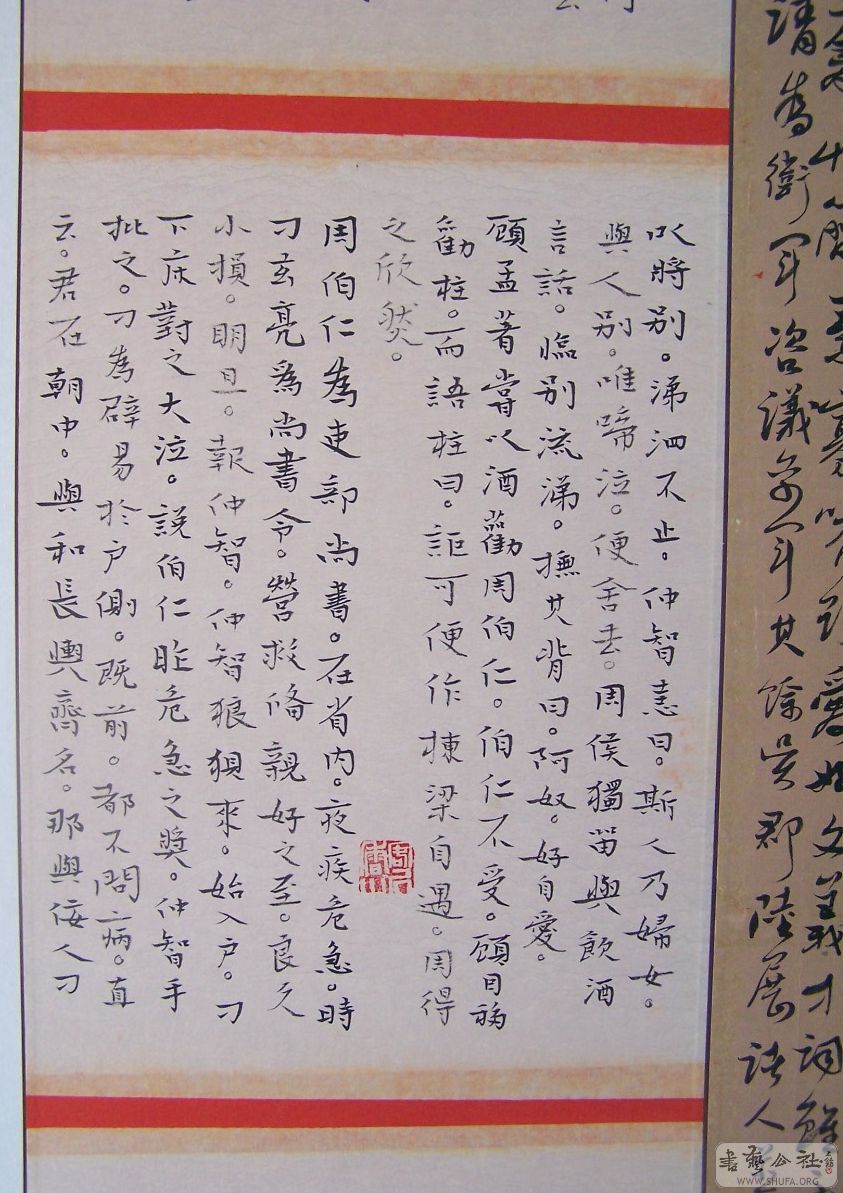 愛好文義才詞雖
請為衛軍咨議參軍其餘吳郡陸展
諸人
以將別。涕泗不止。仲智恚曰。斯人乃婦女。
與人別。唯啼泣。便舍去。周侯獨留與飲酒
言話。臨別流涕。撫其背曰。阿奴。好自愛。
顧孟著嘗以酒勸周伯仁。伯仁不受。顧因移
勸柱。而語柱曰。詎可便作棟梁自遇。周得
之欣然。
周伯仁為吏部尚書。在省內。夜疾危急。時
刁玄亮為尚書令。營救備親好之至。良久
小損。明旦。報仲智。仲智狼狽來。始入戶。刁
下床對之大泣。說伯仁昨危急之奬。仲智手
批之。刁為辟易於戶側。既前。都不問病。直
云。君在朝中。與和長輿齊名。那與佞人刁
書藝公社
WWW.SHUFA.ORG